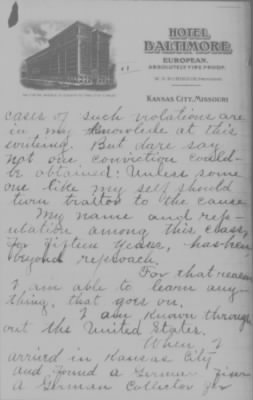 HOTEL
BALTIMORE
EUROPEAN.
ABSOLUTELY FIRE PROOF.
KANSAS CITY, MISSOURI
cases of such violations are
in my knowlede at this
writing. But dare say
not one, conviction could-
be obtained: Unless some
one like my self should
turn traitor to the cause.
My name and rep-
utation among this class,
for fifteen years, has been
beyond reproach.
For that reason
I am able to learn any-
thing, that goes on.
I am known through
out the United States.
When I
arrived in Kansas City
and found a German
a German Collector for